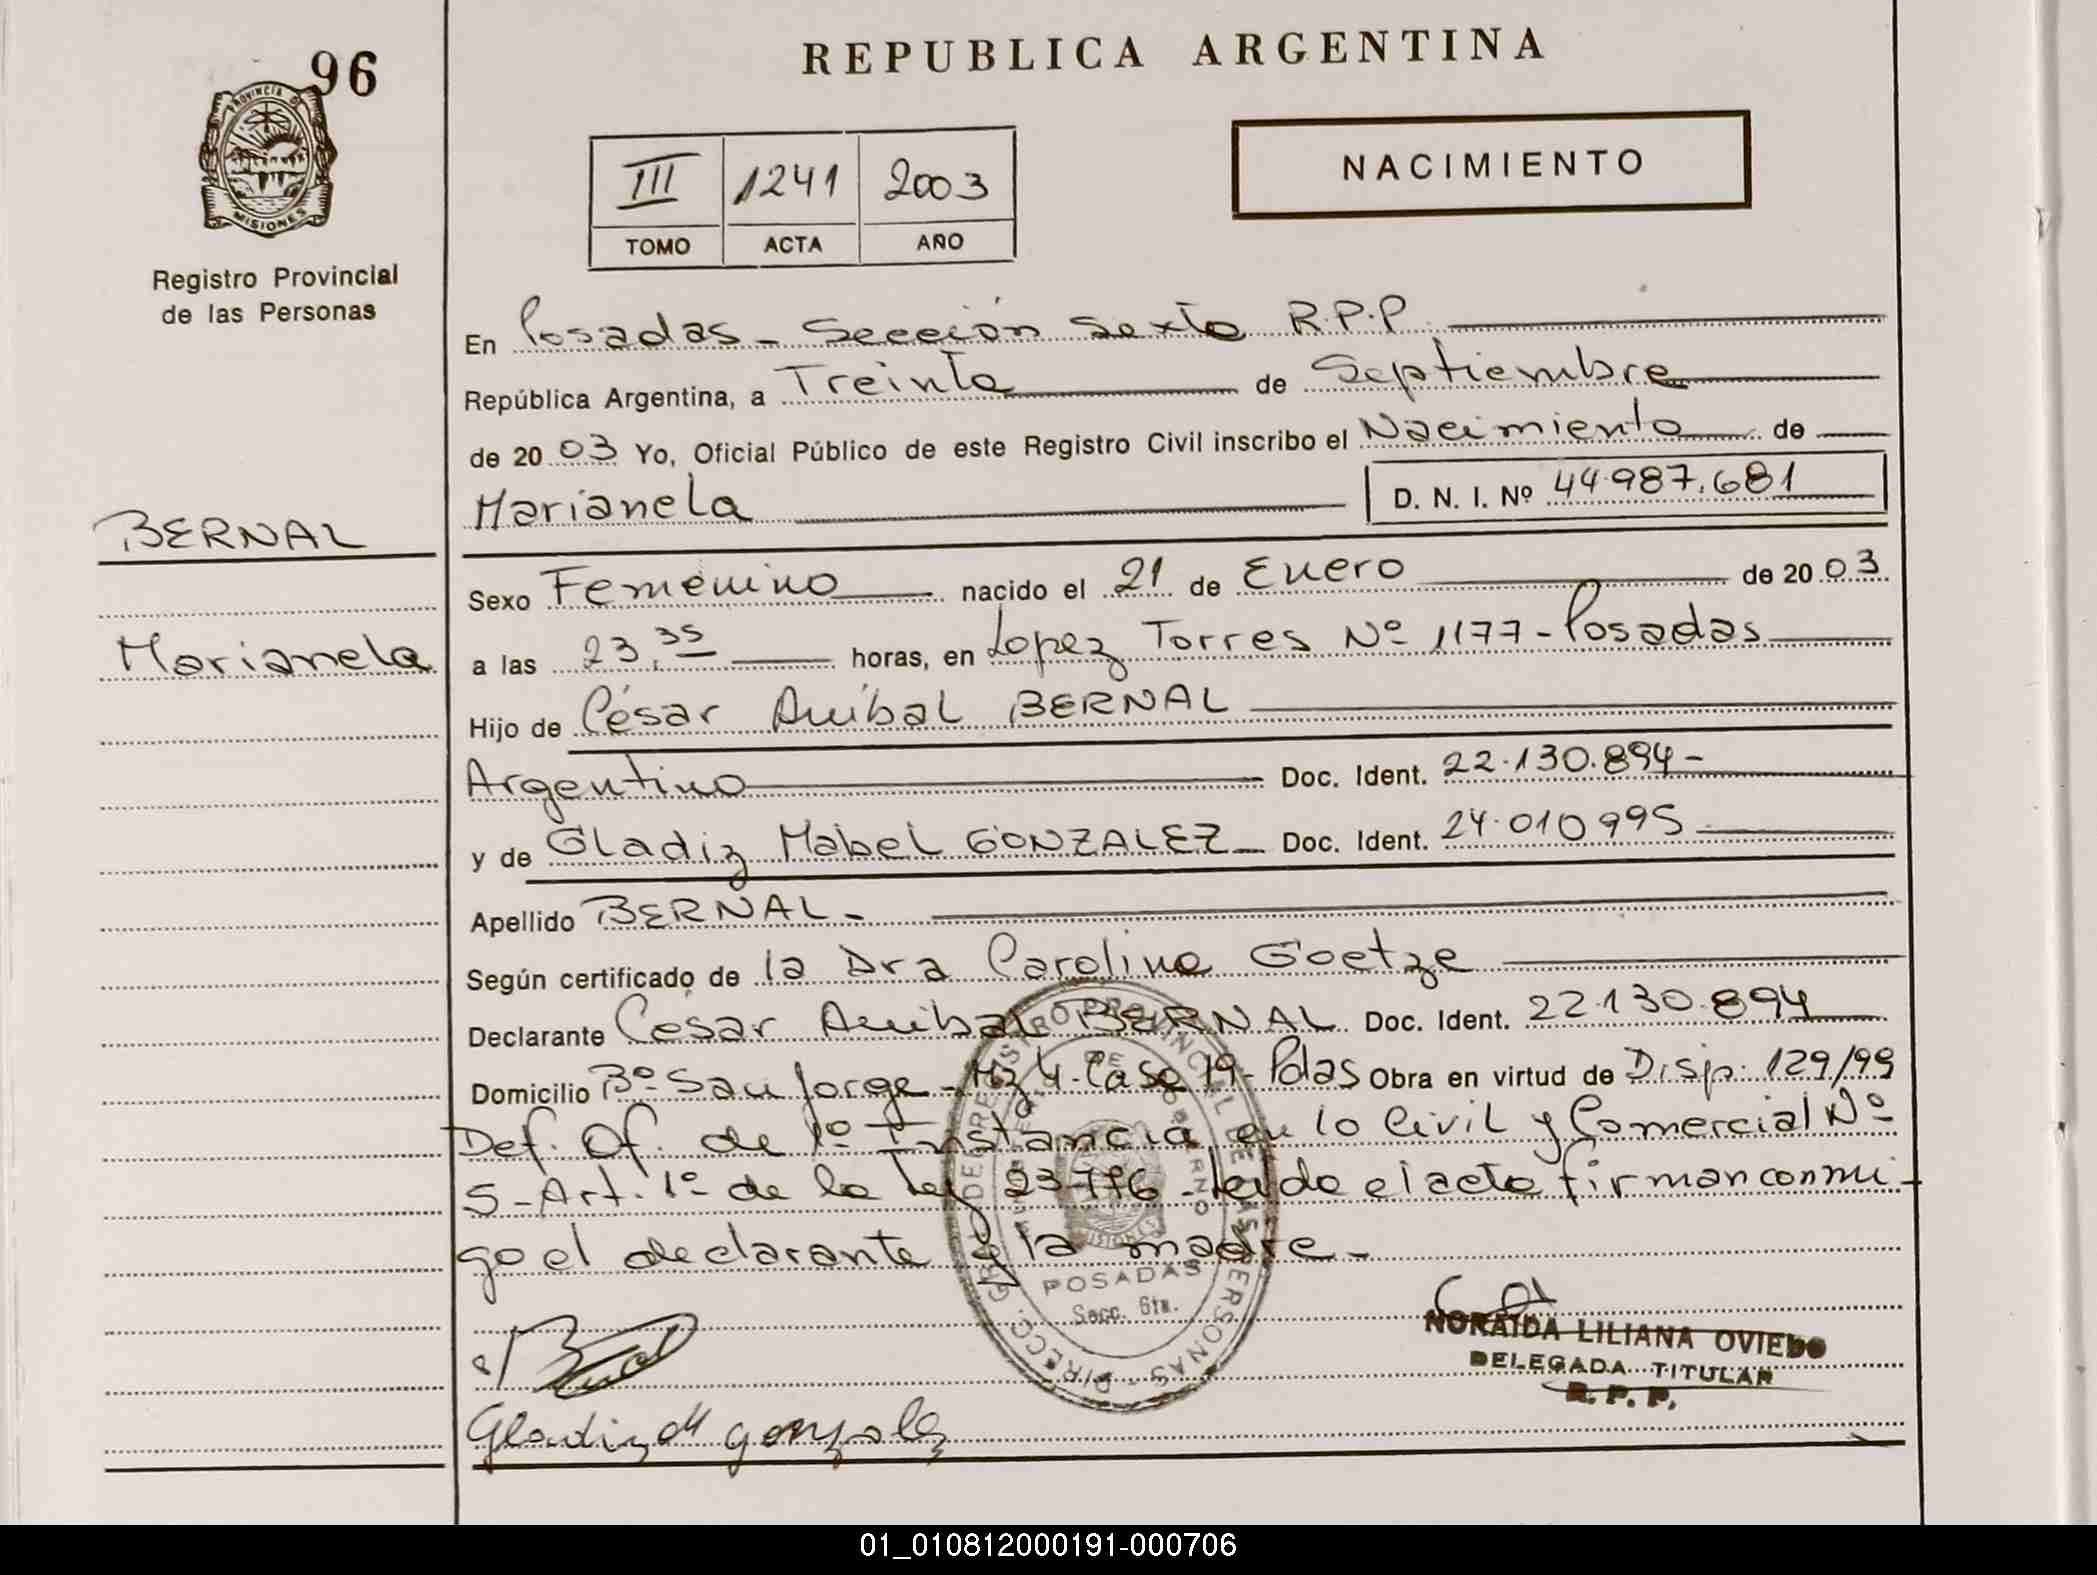 96
REPUBLICA ARGENTINA
PROVINCIA DE
MISIONES
Registro Provincial
de las Personas
III 1241 2003
TOMO ACTA AÑO
NACIMIENTO
En Posadas - Sección Sexta R.P.P.
República Argentina, a Treinta de Septiembre
de 2003 Yo, Oficial Público de este Registro Civil inscribo el Nacimiento de
Marianela D. N. I. Nº 44.987.681
BERNAL
Marianela
Sexo Femenino nacido el 21 de Enero de 2003
a las 23,35 horas, en Lopez Torres Nº 1177 - Posadas
Hijo de César Anibal BERNAL
Argentino Doc. Ident. 22.130.894-
y de Gladiz Mabel GONZALEZ Doc. Ident. 24.010995
Apellido BERNAL-
Según certificado de la Dra Carolina Goetze
Declarante César Anibal BERNAL Doc. Ident. 22.130.894
Domicilio Bº San Jorge - Mz 4 - Casa 19 - Pdas Obra en virtud de Disp: 129/99
Def. Of. de 1º Instancia en lo Civil y Comercial Nº
5 - Art. 1º de la Ley 23776 - leida el acta firman conmi-
go el declarante y la madre-
POSADAS
Secc. 6ta.
Gladiz M gonzalez
NORAIDA LILIANA OVIEDO
DELEGADA TITULAR
R. P. P.
01_010812000191-000706